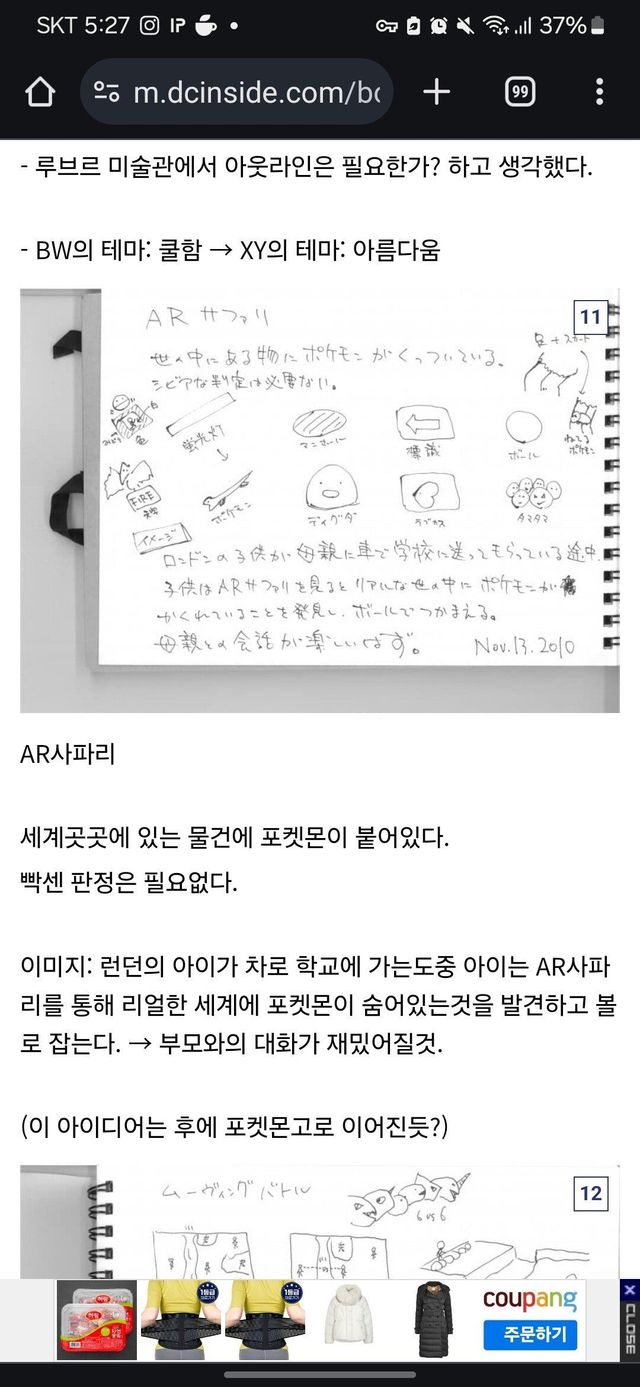 SKT 5:27 IP 37%
m.dcinside.com/bo
99
- 루브르 미술관에서 아웃라인은 필요한가? 하고 생각했다.
- BW의 테마: 쿨함 → XY의 테마: 아름다움
ARサファリ
11
足+スカート
世の中にある物にポケモンがくっついている。
シビアな判定は必要ない。
白
蛍光灯
マンホール
標識
ボール
ねてるポケモン
FIRE
ポケモン
ディグダ
ラブカス
タマタマ
イメージ
ロンドンの子供が母親に車で学校に送ってもらっている途中、
子供はARサファリを見るとリアルな世の中にポケモンが
かくれていることを発見し、ボールでつかまえる。
母親との会話が楽しいはず。
Nov.13.2010
AR사파리
세계곳곳에 있는 물건에 포켓몬이 붙어있다.
빡센 판정은 필요없다.
이미지: 런던의 아이가 차로 학교에 가는도중 아이는 AR사파
리를 통해 리얼한 세계에 포켓몬이 숨어있는것을 발견하고 볼
로 잡는다. → 부모와의 대화가 재밌어질것.
(이 아이디어는 후에 포켓몬고로 이어진듯?)
ムーヴィングバトル
12
6 vs 6
1등급
1등급
coupang
주문하기
X CLOSE